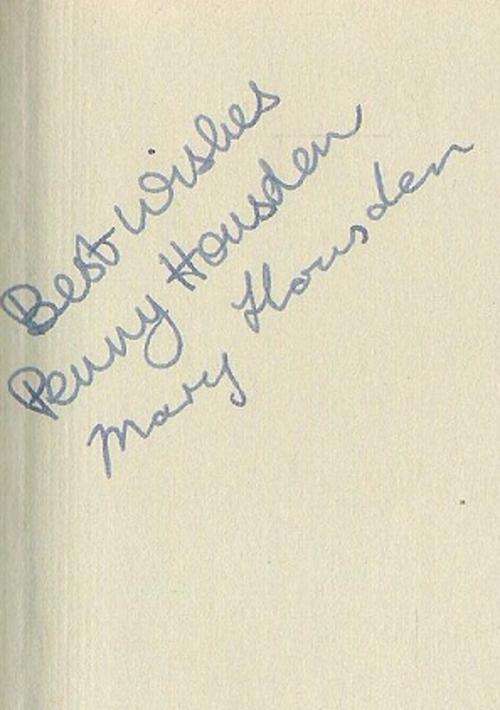 Best Wishes
Penny Housden
Mary Housden